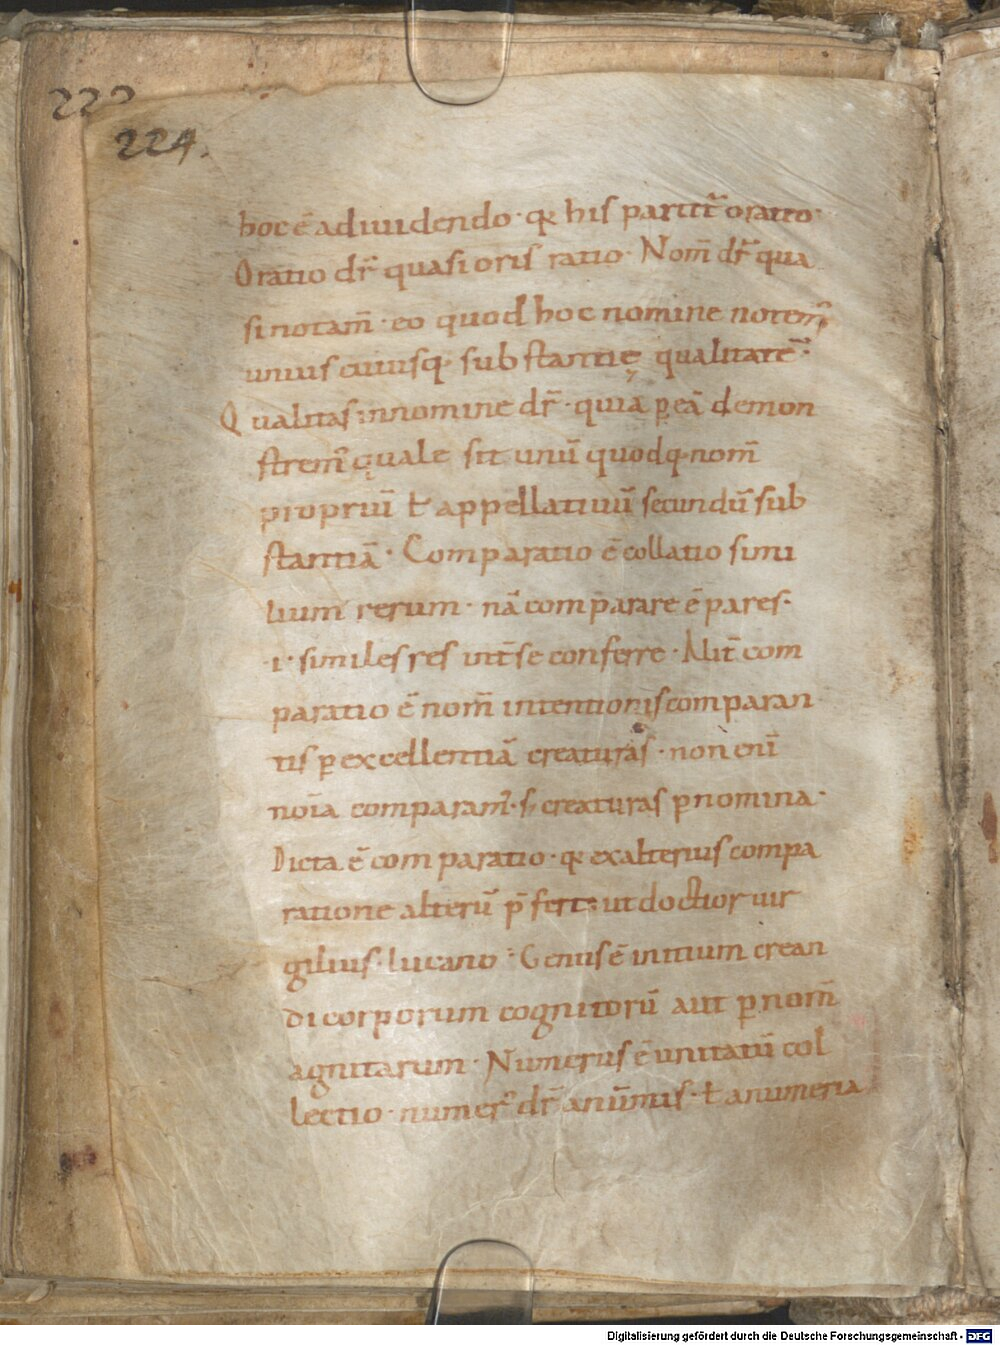 223
224.
hoc ē adiuidendo · qꝛ his partit̄ oratio·
Oratio dr̄ quasi oris ratio · Nom̄ dr̄ qua
si notam̄ · eo quod hoc nomine notem᷒
unius cuiusq· substantię qualitatē·
Qualitas innomine dr̄ · quia ꝑ eā demon
strem᷒ quale sit unū quodq· nom̄
propriū ł appellatiuū secundū sub
stantiā · Comparatio ē collatio simi
lium rerum · nā comparare ē pares·
·i· similes res int̄ se conferre · Alit̄ com
paratio ē nom̄ intentionis comparan
tis ꝑ excellentiā creaturas · non enī
noīa comparam᷒ · s; creaturas ꝑ nomina ·
Dicta ē comparatio · qꝛ exalterius compa
ratione alterū p̄fert· ut doctior uir
gilius lucano · Genus ē initium crean
di corporum cognitorū aut ꝑ nom̄
agnitarum · Numerus ē unitatū col
lectio · numer᷒ dr̄ anūmis · ł anumeria
Digitalisierung gefördert durch die Deutsche Forschungsgemeinschaft - DFG